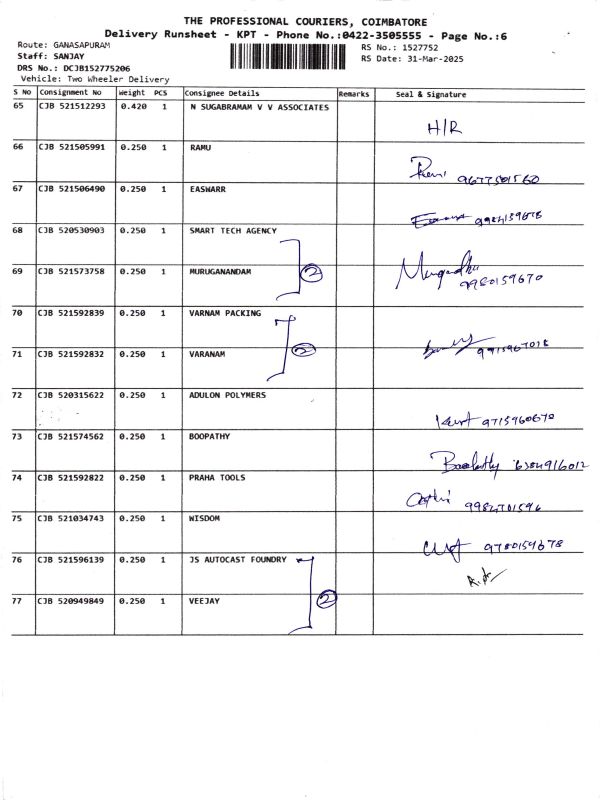 THE PROFESSIONAL COURIERS, COIMBATORE
Delivery Runsheet - KPT - Phone No.:0422-3505555 - Page No.:6
Route: GANASAPURAM
Staff: SANJAY
DRS No.: DCJB152775206
Vehicle: Two Wheeler Delivery
RS No.: 1527752
RS Date: 31-Mar-2025
S No Consignment No Weight PCS Consignee Details Remarks Seal & Signature
65 CJB 521512293 0.420 1 N SUGABRAMAM V V ASSOCIATES
H/R
66 CJB 521505991 0.250 1 RAMU
9677501560
67 CJB 521506490 0.250 1 EASWARR
68 CJB 520530903 0.250 1 SMART TECH AGENCY
69 CJB 521573758 0.250 1 MURUGANANDAM
2
9980159670
70 CJB 521592839 0.250 1 VARNAM PACKING
71 CJB 521592832 0.250 1 VARANAM
2
72 CJB 520315622 0.250 1 ADULON POLYMERS
9715960670
73 CJB 521574562 0.250 1 BOOPATHY
Boopathy 6384916012
74 CJB 521592822 0.250 1 PRAHA TOOLS
75 CJB 521034743 0.250 1 WISDOM
9780159678
76 CJB 521596139 0.250 1 JS AUTOCAST FOUNDRY
77 CJB 520949849 0.250 1 VEEJAY
2